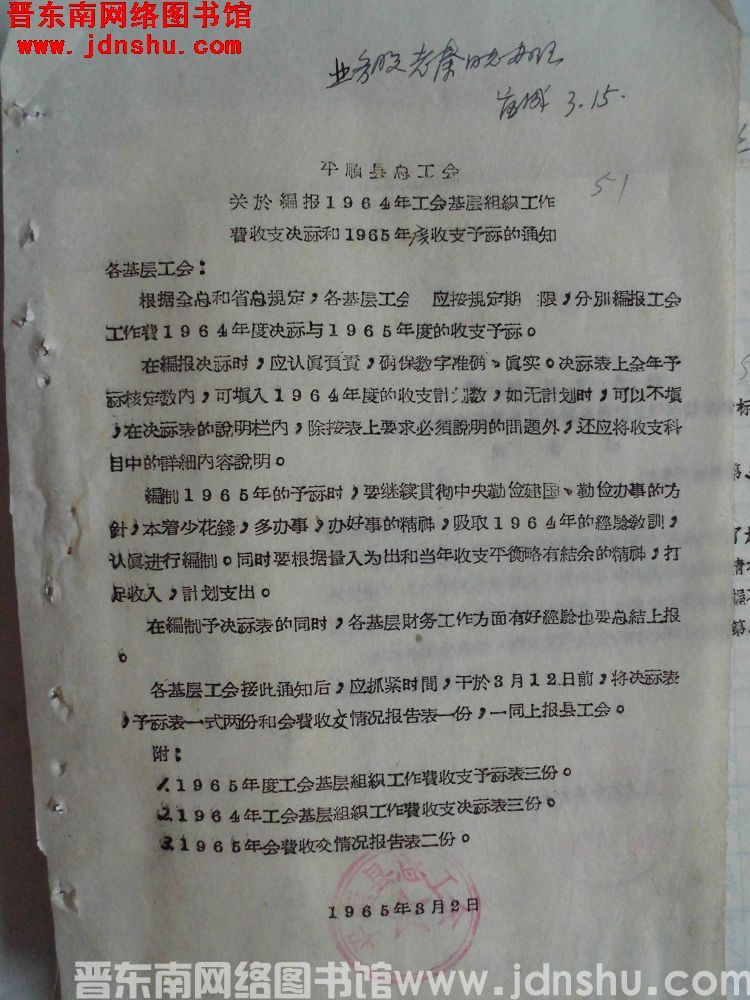 晋东南网络图书馆
www.jdnshu.com
3.15.
51
平順县总工会
关於編报1964年工会基层組织工作
費收支决祘和1965年度收支予祘的通知
各基层工会：
根据全总和省总規定，各基层工会 应按規定期 限，分别編报工会
工作費1964年度决祘与1965年度的收支予祘。
在編报决祘时，应认眞負責，确保数字准确、眞实。决祘表上全年予
祘核定数內，可填入1964年度的收支計划数，如无計划时，可以不填
，在决祘表的說明栏內，除按表上要求必須說明的問題外，还应将收支科
目中的詳細內容說明。
編制1965年的予祘时，要继续貫彻中央勤儉建国、勤儉办事的方
針，本着少花錢，多办事，办好事的精神，吸取1964年的經驗教訓，
认眞进行編制。同时要根据量入为出和当年收支平衡略有結余的精神，打
足收入，計划支出。
在編制予决祘表的同时，各基层財务工作方面有好經驗也要总結上报
。
各基层工会接此通知后，应抓紧时間，干於3月12日前，将决祘表
，予祘表一式两份和会費收交情况报告表一份，一同上报县工会。
附：
1.1965年度工会基层組织工作費收支予祘表三份。
2.1964年工会基层組织工作費收支决祘表三份。
3.1965年会費收交情况报告表二份。
1965年3月2日
晋东南网络图书馆 www.jdnshu.com